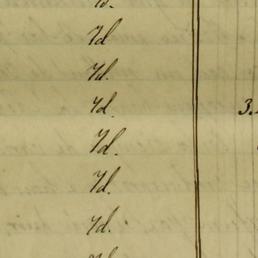 Id.
Id
Id.
Id. 3.
Id.
Id.
Id.
Id.